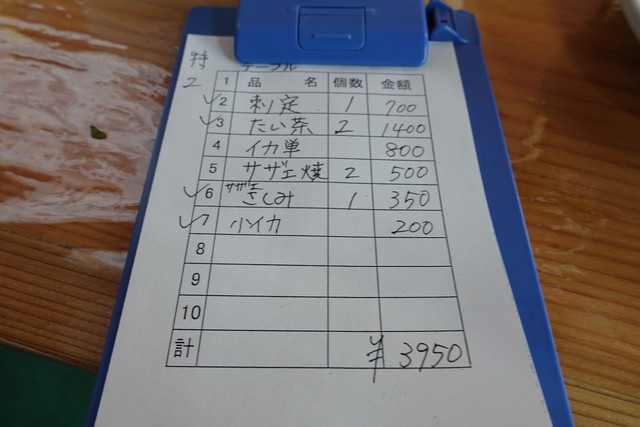 テーブル
特
2
1 品 名 個数 金額
✓2 刺定 1 700
✓3 たい茶 2 1400
4 イカ単 800
5 サザエ焼 2 500
✓6 サザエ さしみ 1 350
✓7 小イカ 200
8
9
10
計 ¥3950